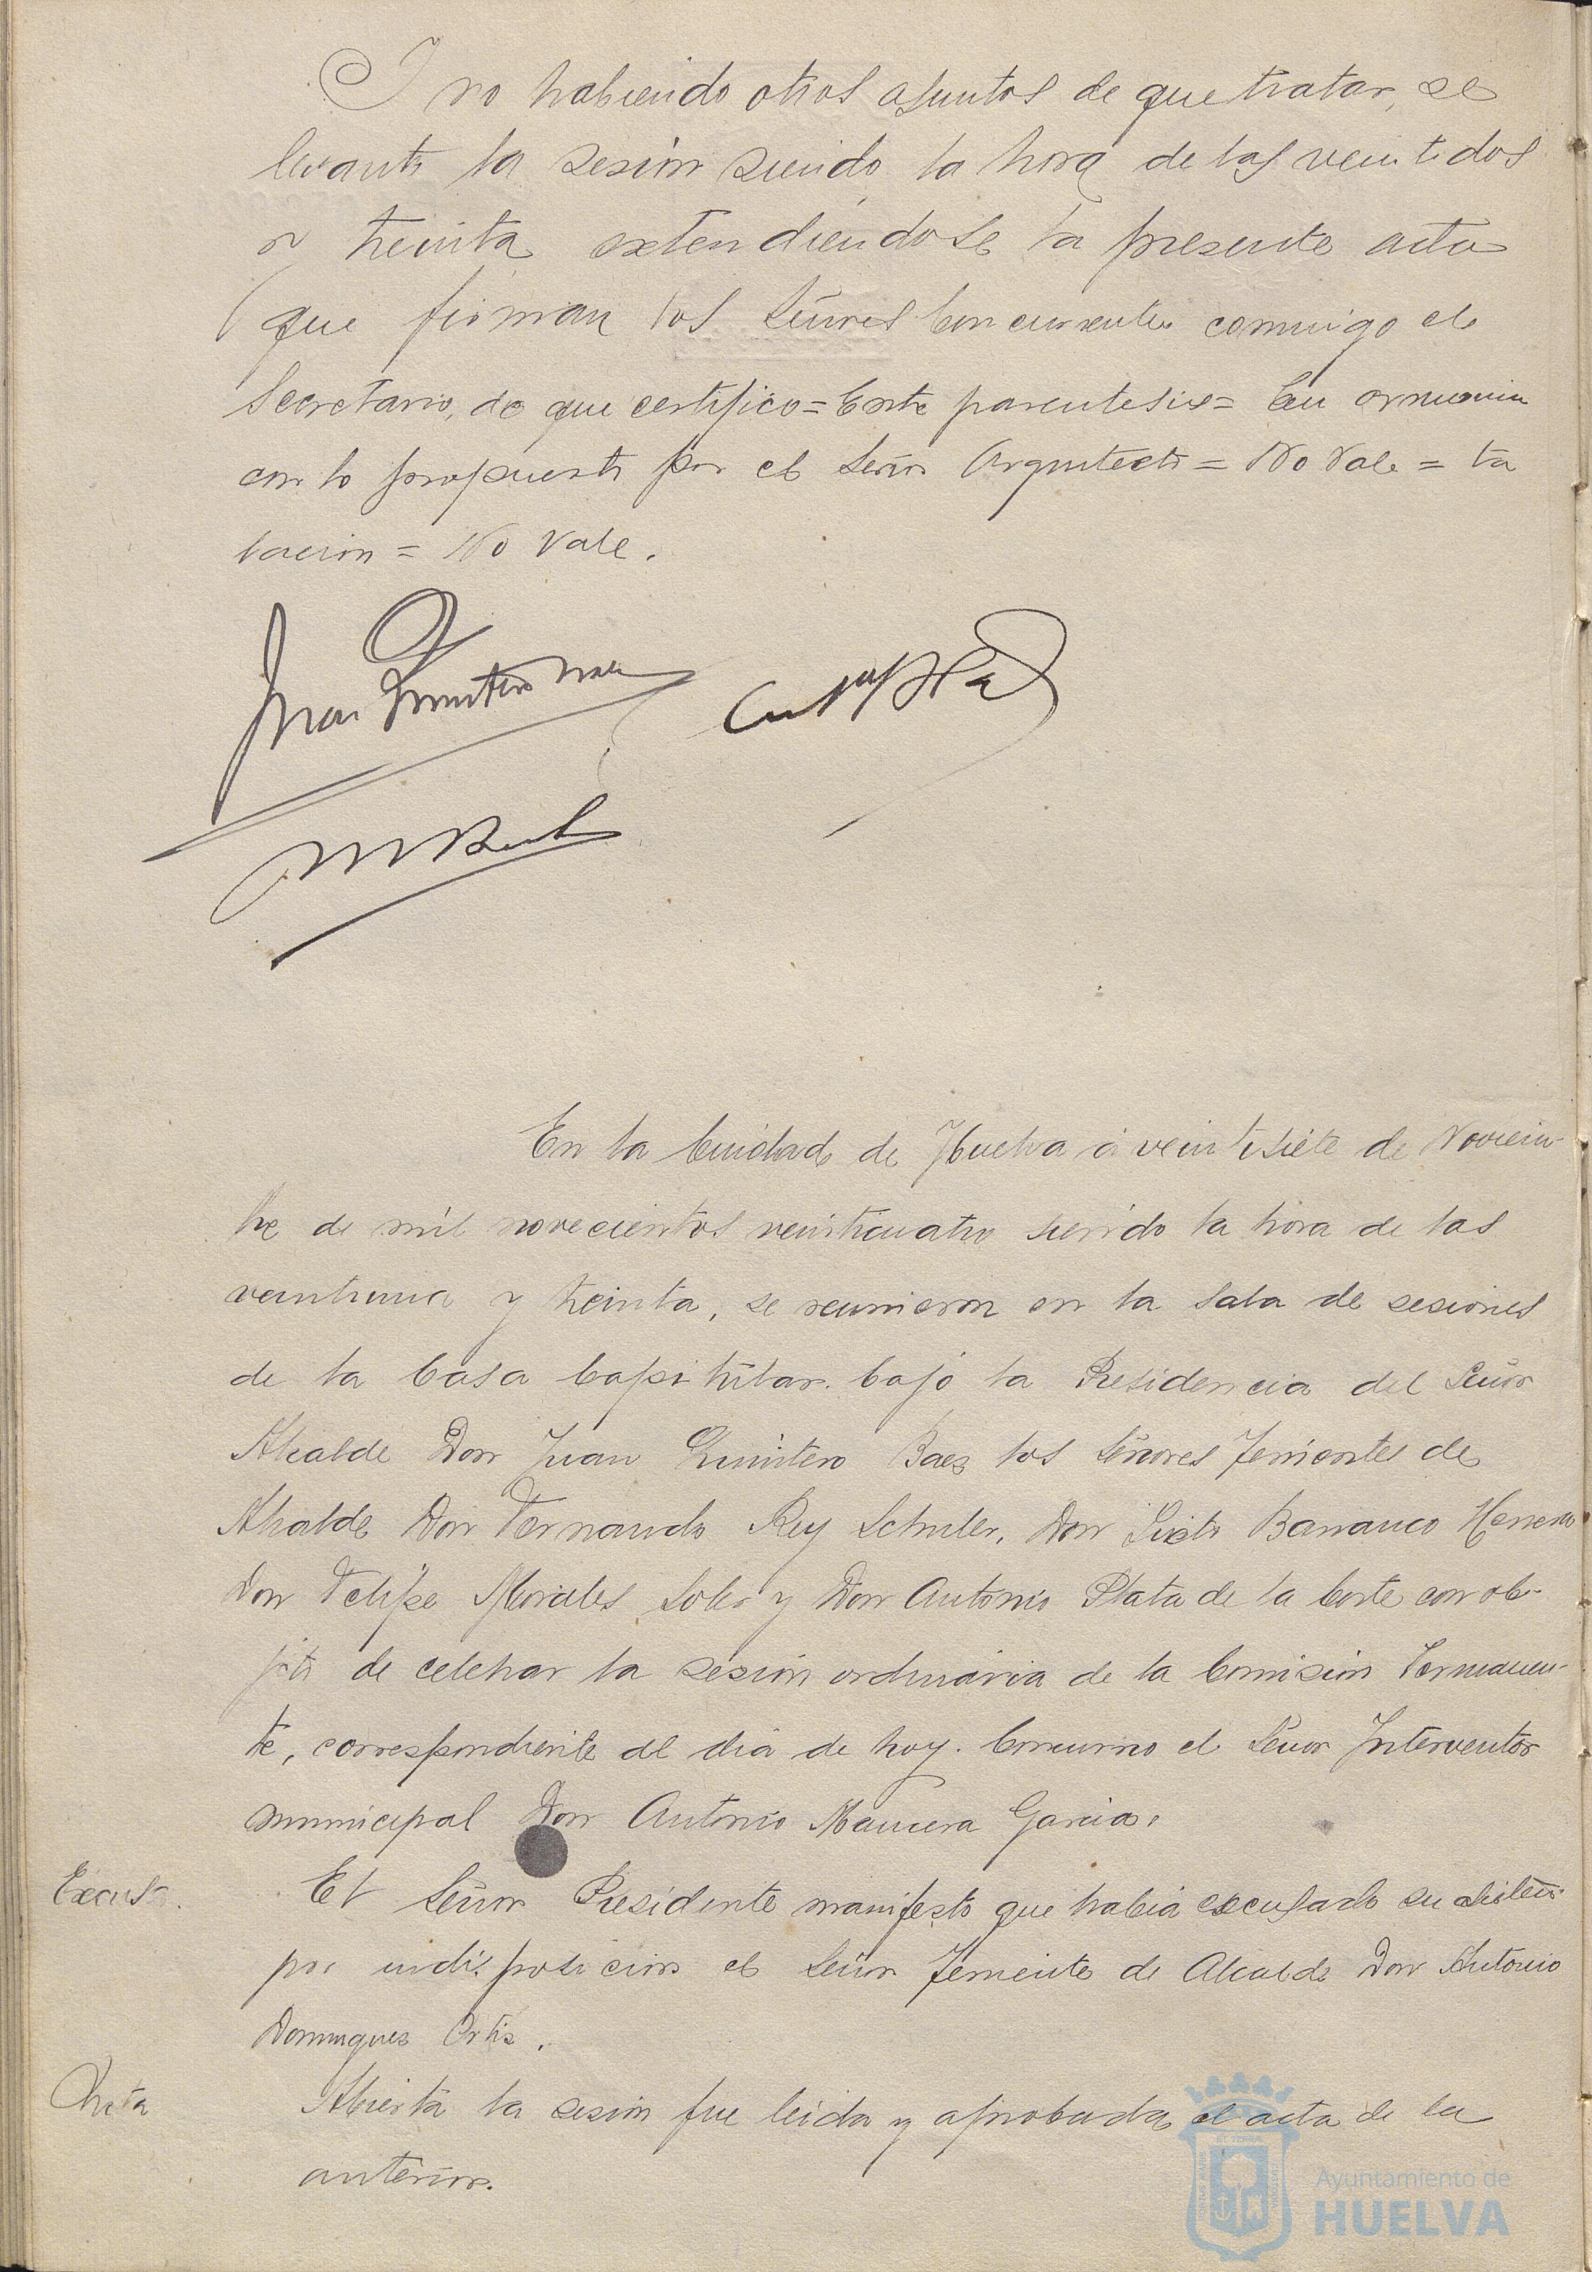 Y no habiendo otros asuntos de que tratar, se
levantó la sesión siendo la hora de las veintidos
y treinta extendiéndose la presente acta
que firman los Señores Concurrentes conmigo el
Secretario, de que certifico = Entre parentesis = En armonia
con lo propuesto por el Señor Arquitecto = No Vale = ta
tacion = No Vale.
Juan Quintero Baez
En la Ciudad de Huelva á veintisiete de Noviem-
bre de mil novecientos veinticuatro siendo la hora de las
veintiuna y treinta, se reunieron en la Sala de sesiones
de la Casa Capitular bajo la Presidencia del Señor
Alcalde Don Juan Quintero Baez los Señores Tenientes de
Alcalde Don Fernando Rey Schuler, Don Sixto Barranco Herrera
Don Felipe Morales Soler y Don Antonio Plata de la Corte con ob-
jeto de celebrar la sesión ordinaria de la Comisión Permanen-
te, correspondiente al dia de hoy. Concurrio el Señor Interventor
municipal Don Antonio Mancera Garcia.
Excusa.
El Señor Presidente manifestó que habia excusado su asistencia
por indisposicion el Señor Teniente de Alcalde Don Antonio
Dominguez Ortiz.
Acta
Abierta la sesión fue leida y aprobada el acta de la
anterior.
Ayuntamiento de
HUELVA